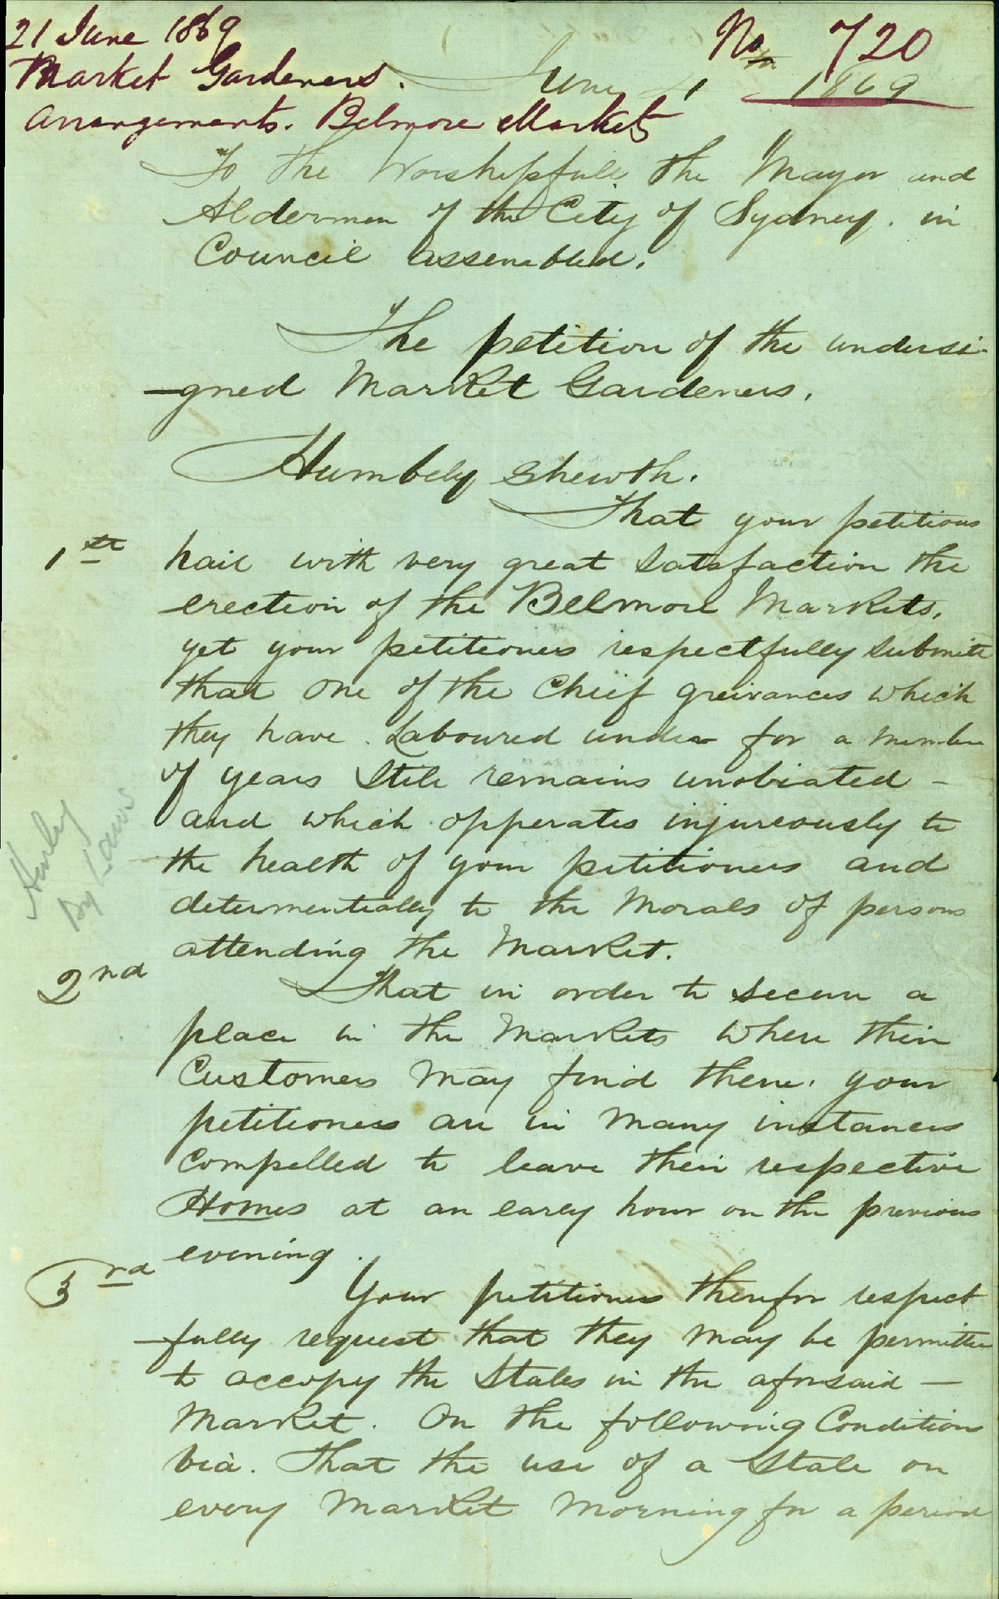 21 June 1869
No 720
Market Gardeners.
June 1869
Arrangements. Belmore Markets
To the Worshipfull the Mayor and
Aldermen of the City of Sydney. in
Council assembled.
The petition of the undersi-
-gned Market Gardeners.
Humbely Shewth.
That your petitious
1st
hail with very great Satesfaction the
erection of the Belmore Markets,
yet your petitioners respectfully Submitt
that one of the Chief greivances which
they have Laboured under for a number
of years Still remains unobiated -
and which opperates injureously to
the health of your petitioners and
determentially to the Morals of persons
attending the Market.
2nd
That in order to Secure a
place in the Markets where their
Customers May find them. your
petitioners are in Many instances
Compelled to leave their respective
Homes at an early hour on the previous
evening.
3rd
Your petitioners therefor respect
-fully request that they May be permitted
to accupy the Stales in the aforesaid -
Market. On the following Conditions
via. That the use of a Stale on
every Market Morning for a period